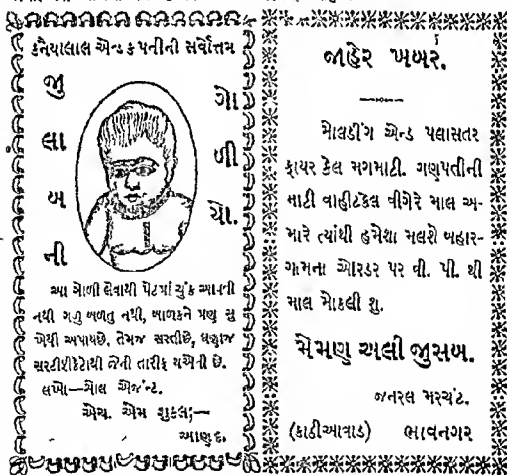 કનૈયાલાલ એન્ડ કંપનીની સર્વોત્તમ
જુલાબની
ગોળીયો.
આ ગોળી લેવાથી પેટમાં ચુંક આવતી
નથી ગળુ બળતુ નથી, બાળકને પણ સુ
ખેથી અપાયછે. તેમજ સસ્તીછે, ઘણાજ
સરટીફીકેટોથી જેની તારીફ થએલી છે.
લખો—સોલ એજંન્ટ.
એચ. એમ શુકલ;—
આણંદ.
જાહેર ખબર.
મોલડીંગ એન્ડ પલાસતર
ફાયર કલે મગમાટી. ગણપતીની
માટી વાહીટકલે વીગેરે માલ અ-
મારે ત્યાંથી હમેશા મલશે બહાર-
ગામના ઓરડર પર વી. પી. થી
માલ મોકલી શુ.
મેમણ અલી જુસબ.
જનરલ મરચંટ.
(કાઠીઆવાડ) ભાવનગર